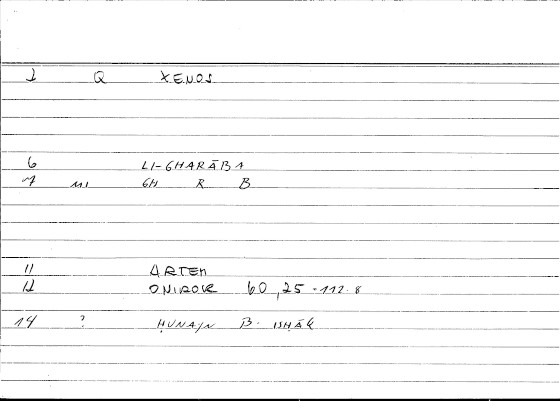 2 Q XENOS
6 LI-GHARĀBA
7 MI GH R B
11 ARTEM
12 ONIROCR 60,25-112.8
14 ? ḤUNAYN B. ISḤĀQ